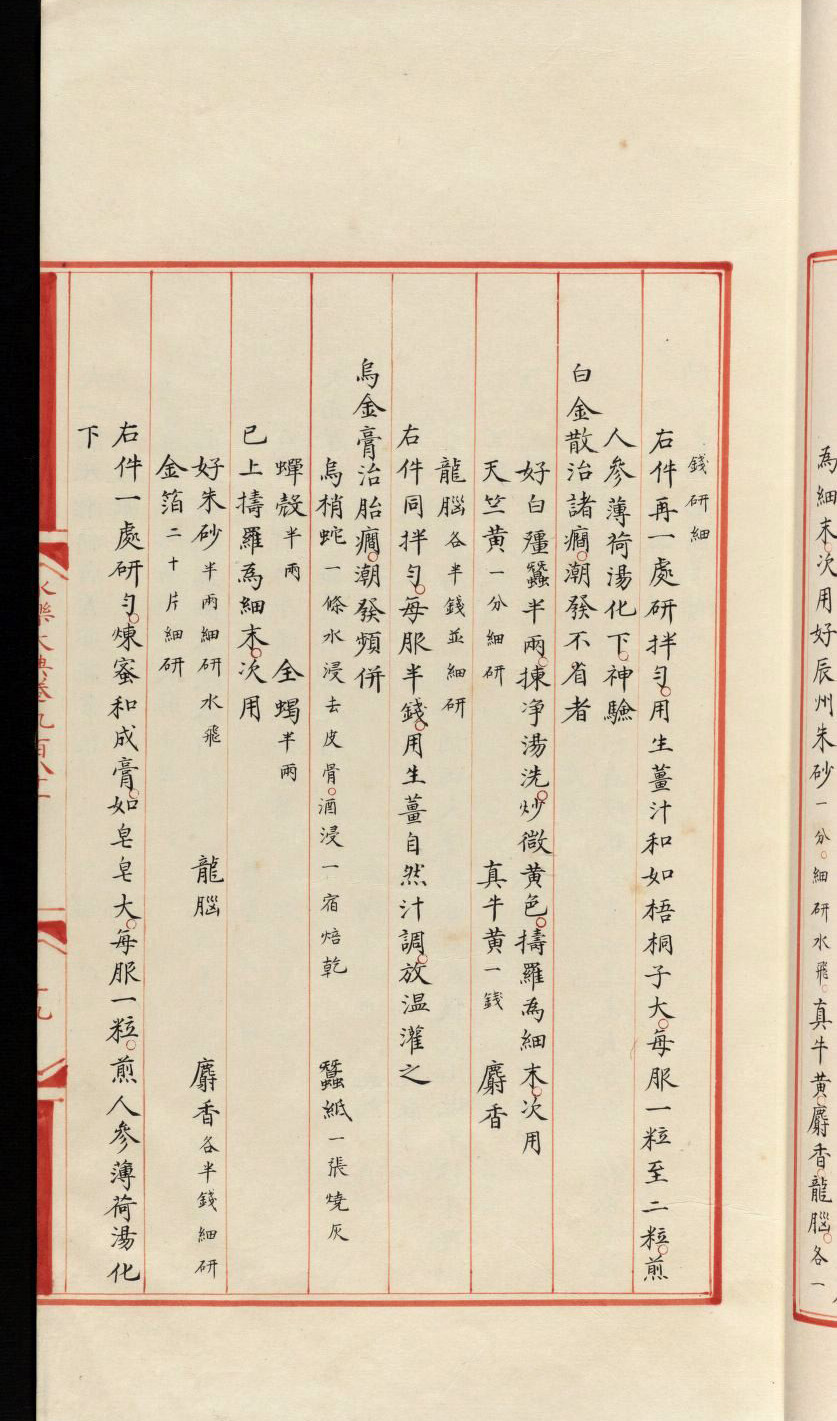 為細末。次用好辰州朱砂一分。細研水飛。真牛黃。麝香。龍腦。各一
錢研細
右件再一處研拌勻。用生薑汁和如梧桐子大。每服一粒至二粒。煎
人參薄荷湯化下。神驗
白金散治諸癇。潮發不省者
好白殭蠶半兩。揀淨湯洗。炒微黃色。擣羅為細末。次用
天竺黃一分細研 真牛黃一錢 麝香
龍腦各半錢並細研
右件同拌勻。每服半錢。用生薑自然汁調。放温灌之
烏金膏治胎癇。潮發頻併
烏梢蛇一條水浸去皮骨。酒浸一宿焙乾 蠶紙一張燒灰
蟬殼半兩 全蝎半兩
已上擣羅為細末。次用
好朱砂半兩細研水飛 龍腦 麝香各半錢細研
金箔二十片細研
右件一處研勻。煉蜜和成膏。如皂皂大。每服一粒。煎人參薄荷湯化
下
永樂大典卷九百八十一
十九